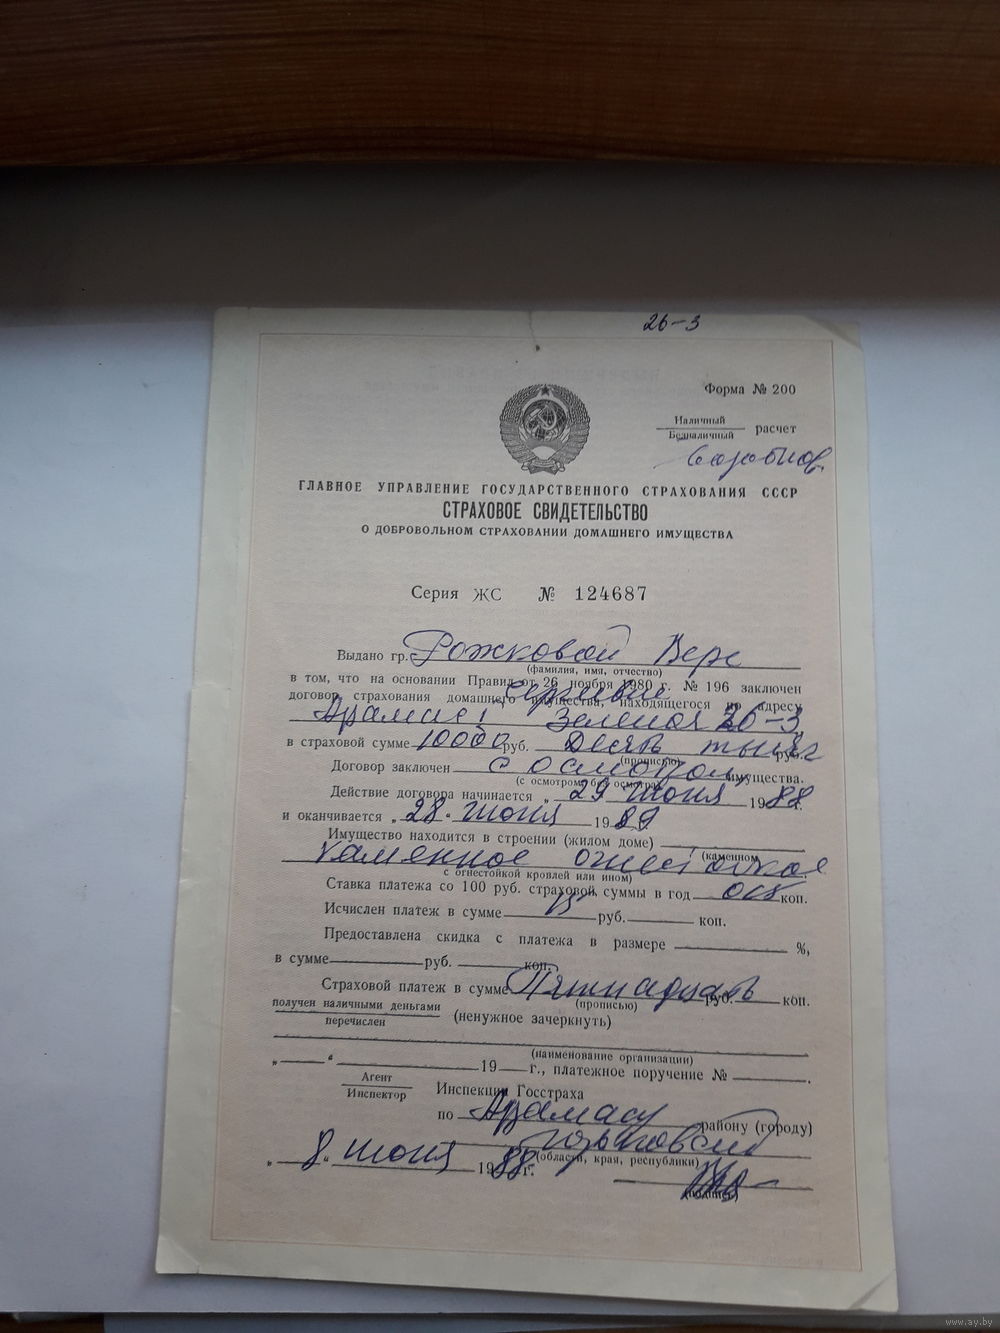 26-3
Форма № 200
Наличный
Безналичный расчет
ГЛАВНОЕ УПРАВЛЕНИЕ ГОСУДАРСТВЕННОГО СТРАХОВАНИЯ СССР
СТРАХОВОЕ СВИДЕТЕЛЬСТВО
О ДОБРОВОЛЬНОМ СТРАХОВАНИИ ДОМАШНЕГО ИМУЩЕСТВА
Серия ЖС № 124687
Выдано гр. Рожковой Вере
(фамилия, имя, отчество)
Сергеевне
в том, что на основании Правил от 26 ноября 1980 г. № 196 заключен
договор страхования домашнего имущества, находящегося по адресу
Арзамас, Зеленая 26-3
в страховой сумме 10000 руб. Десять тысяч руб.
(прописью)
Договор заключен с осмотром имущества.
(с осмотром, без осмотра)
Действие договора начинается „ 29 июня 1988 г.
и оканчивается „ 28 июня 1989
Имущество находится в строении (жилом доме)
(каменном
каменное огнестойкое
с огнестойкой кровлей или ином)
Ставка платежа со 100 руб. страховой суммы в год коп.
Исчислен платеж в сумме 15 руб. коп.
Предоставлена скидка с платежа в размере %,
в сумме руб. коп.
Страховой платеж в сумме Пятнадцать руб. коп.
(прописью)
получен наличными деньгами
перечислен (ненужное зачеркнуть)
(наименование организации)
„ “ 19 г., платежное поручение № .
Агент
Инспектор
Инспекции Госстраха
по Арзамасу району (городу)
Горьковской
(области, края, республики)
„ 8 июня 1988 г.
(подпись)
www.ay.by